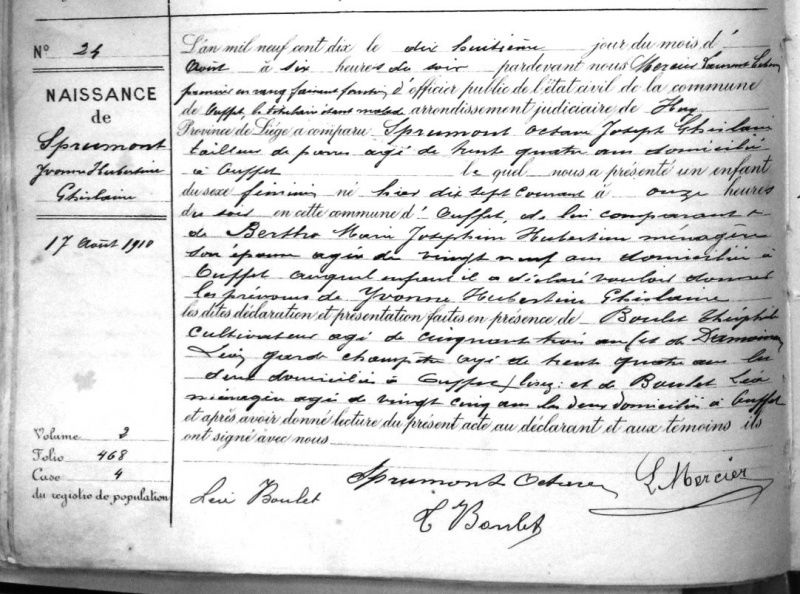 N° 24
NAISSANCE
de
Sprumont
Yvonne Hubertine
Ghislaine
17 Août 1910
Volume 2
Folio 468
Case 4
du registre de population
L'an mil neuf cent dix le dix huitième jour du mois d'
Août à six heures du soir pardevant nous Mercier Laurent
premier en rang faisant fonction d'officier public de l'état civil de la commune
de Ouffet, le titulaire étant malade arrondissement judiciaire de Huy
Province de Liége, a comparu Sprumont Octave Joseph Ghislain
tailleur de pierres agé de trente quatre ans domicilié
à Ouffet le quel nous a présenté un enfant
du sexe féminin né hier dix sept courant à onze heures
du soir en cette commune d' Ouffet, de lui comparant &
de Bertho Marie Joséphine Hubertine ménagère
son épouse agée de vingt neuf ans domiciliée à
Ouffet auquel enfant il a déclaré vouloir donner
les prénoms de Yvonne Hubertine Ghislaine
les dites déclaration et présentation faites en présence de Boulet Théophile
cultivateur agé de cinquante trois ans (et de Damoiseau
Léon garde champêtre agé de trente quatre ans les
deux domiciliés à Ouffet) lisez: et de Boulet Léa
ménagère agée de vingt cinq ans les deux domiciliés à Ouffet
et après avoir donné lecture du présent acte au déclarant et aux témoins ils
ont signé avec nous
Sprumont Octave
L Mercier
Léa Boulet
T Boulet